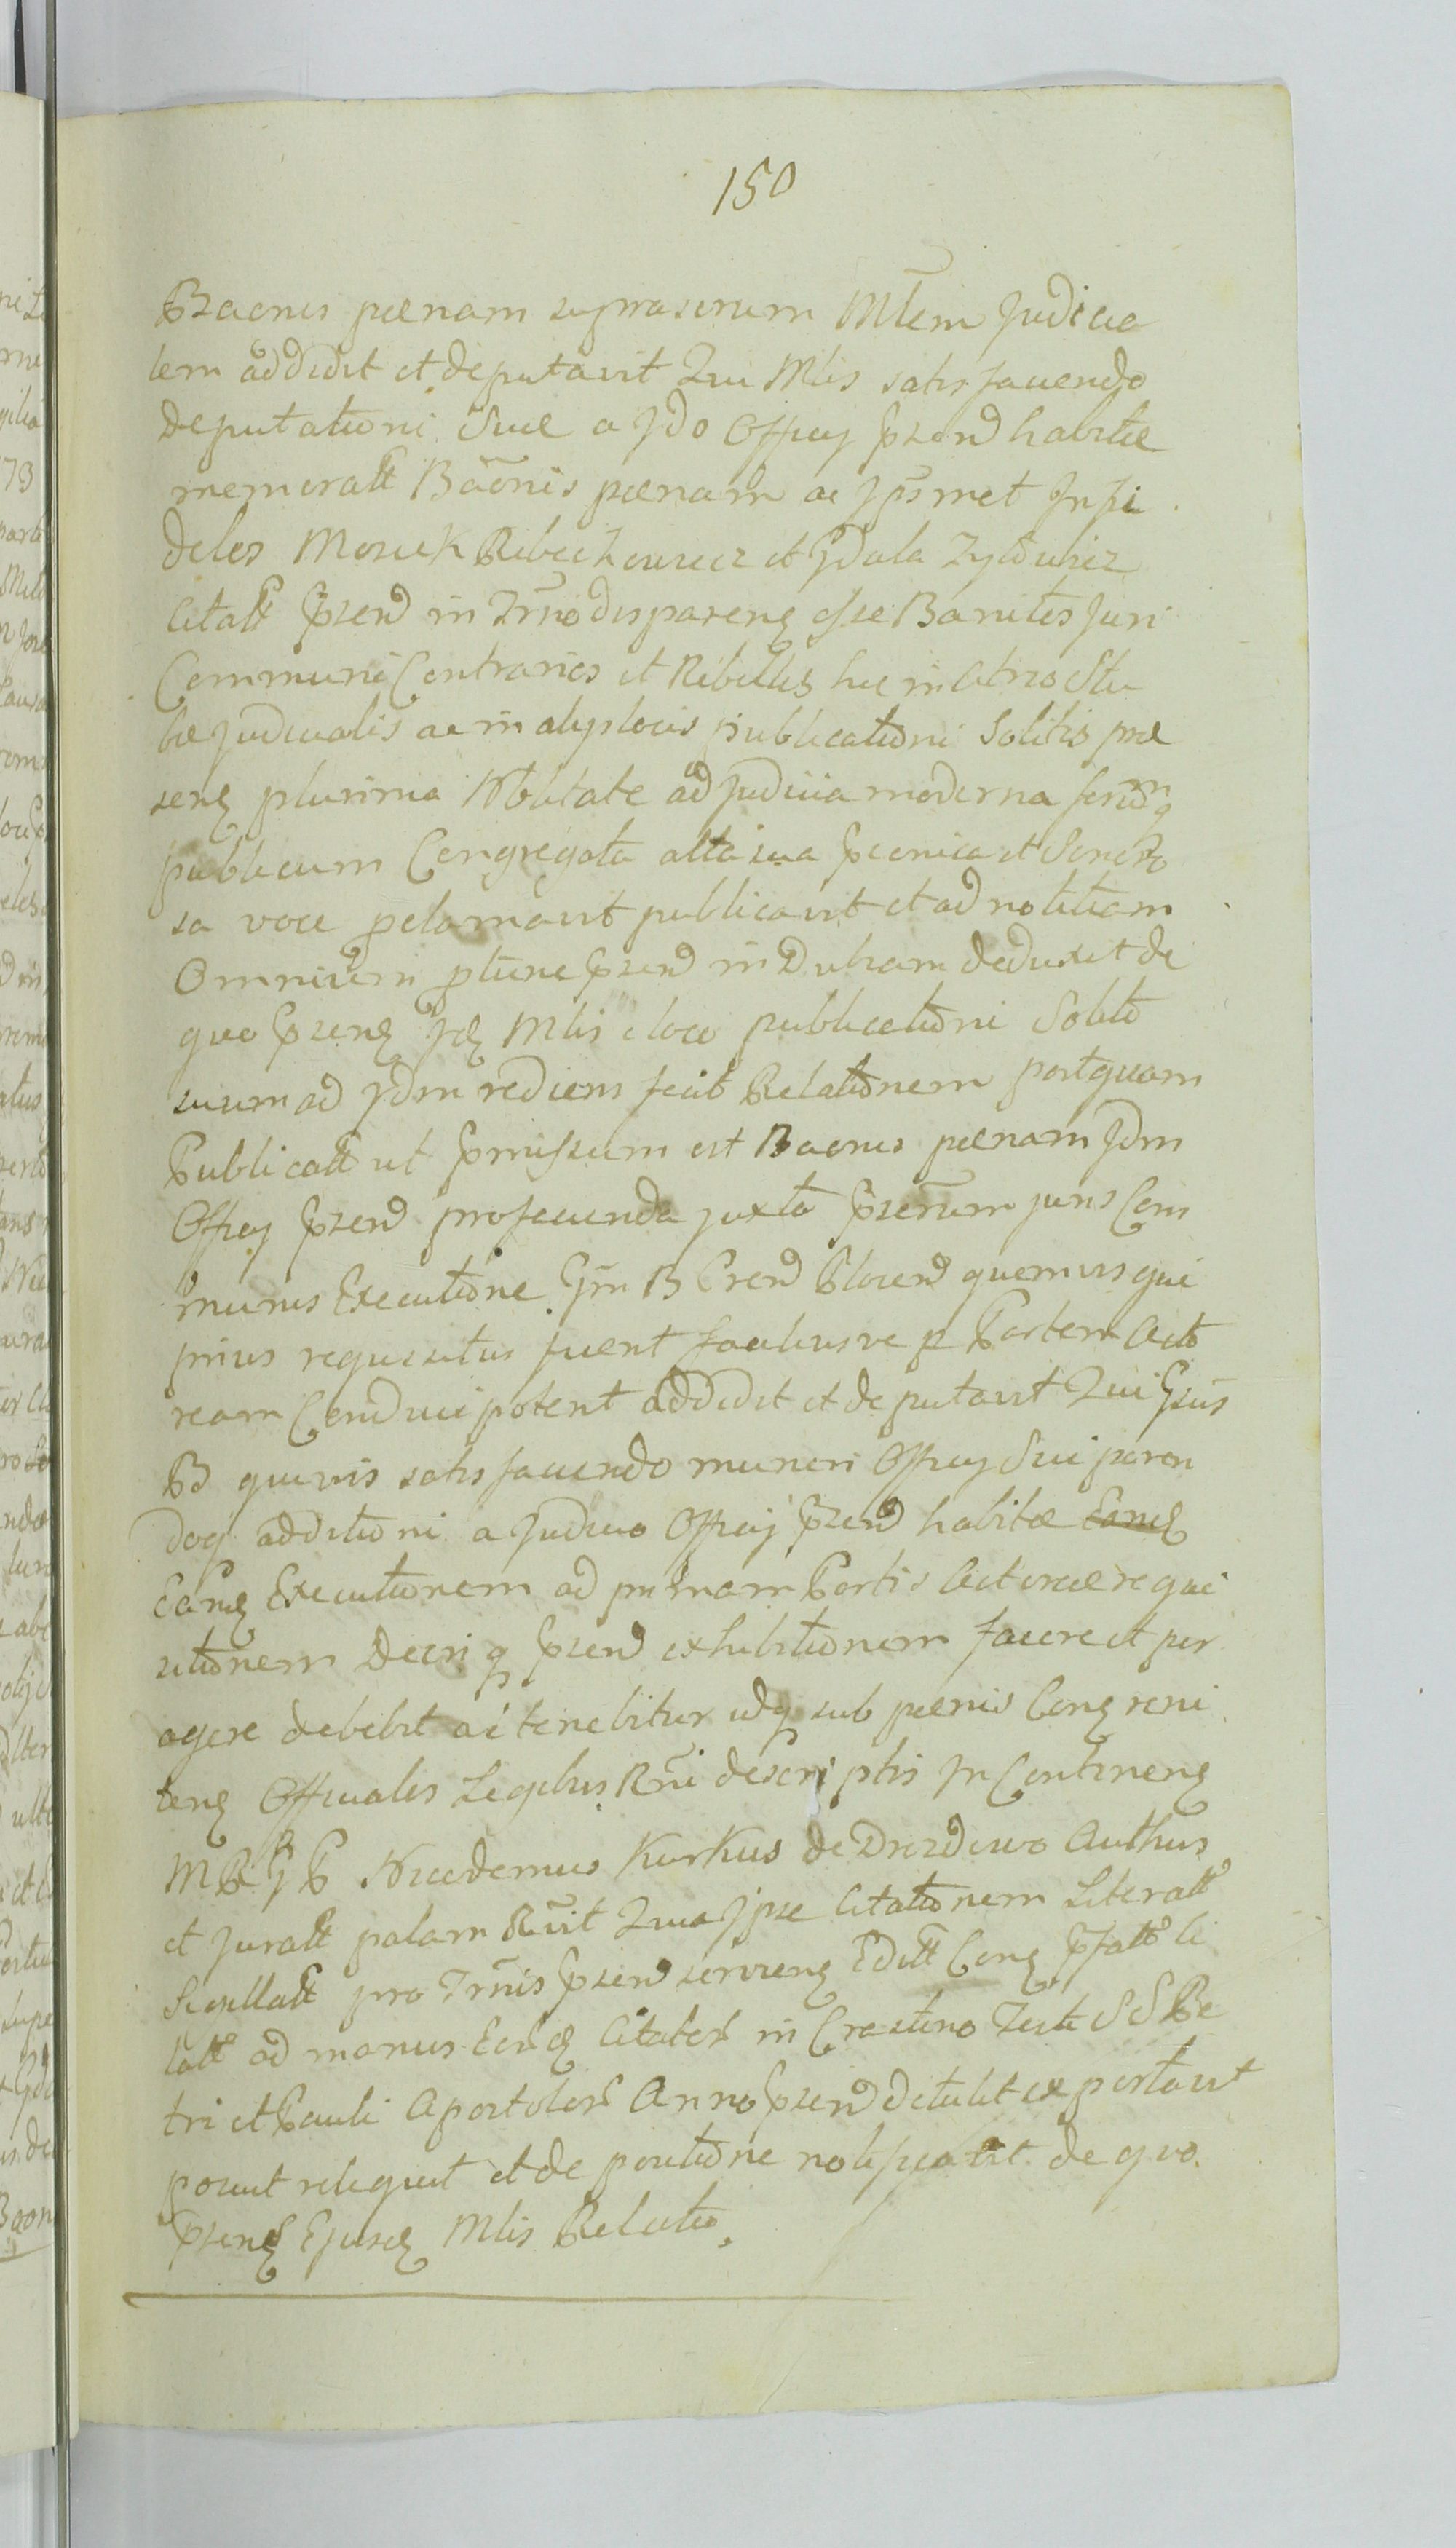 150
Bzaonis pœnam suprascrum Mlem Judicia
lem addidit et deputavit Qui Mlis satisfaciendo
Deputationi Suæ a Jdo Officy Pzend habitæ
memoratt Bãonis pœnam ac Jpsmet Infi
deles Mosiek et Jdala
Citatt Pzend in Trno disparenq esse Banitos Juri
Communi Contrarios et Rebelles hic in Atrio Stu
bæ Judicialis ac in alys locis publicationi Solitis præ
senq plurima Nbilitate ad Judicia moderna
publicum Congregata alta sua Pconica et Sono
sa voce pclamavit publicavit et ad notitiam
Omnium ptunc Pzend in Dubiam deduxit de
quo Pzenq Jdq Mlis e loco publicationi Solito
suum ad Jdm rediens fecit Relationem postquam
Publicatt ut Pmissum est Baonis pœnam Jdm
Officy Pzend profacienda juxta Pzerum juris Com
munis Executione Gm B Crend Plocend quemvis qui
prius requisitus fuerit facibusve p Partem Acto
ream Conduci poterit addidit et deputavit Qui
B quivis satisfaciendo muneri Officy Sui paren
doq additioni a Judicio Officij Pzend habitæ
Eamq Executionem ad primam Partis Actoreæ requi
sitionem Decriq Pzend exhibitionem facere et per
agere debebit ac tenebitur idq sub pœnis Conq reni
tenq Officiales Legibus Rni descriptis In Continenq
M Nicodemus Kurkus de Drozdzewo Authus
et Juratt palam Rvit Quia Jpse Citationem Literatt
Sigillatt pro Trnis Pzend servienq Editt Conq Pfatt Ci
tatt ad manus Citator in Crastino Festi SS Pe
tri et Pauli Apostolor Anno Pzend detulit exportavit
posuit reliquit et de positione notificavit de quo
Pzenq Ejusq Mlis Relatio